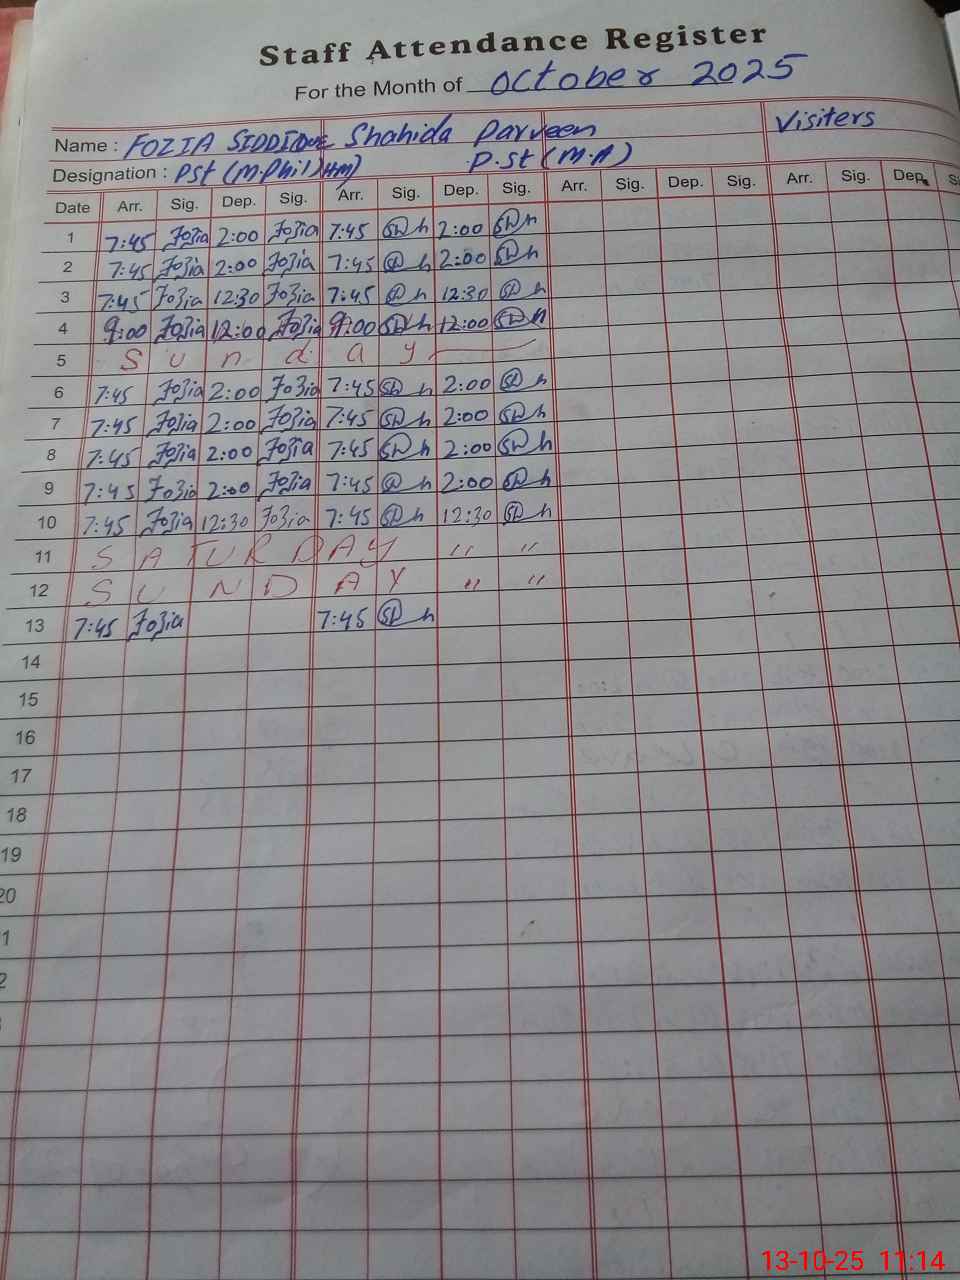 Staff Attendance Register
For the Month of October 2025
Name : FOZIA SIDDIQUE Shahida Parveen Visiters
Designation : Pst (M.Phil) (HM) P.st (M.A)
Date Arr. Sig. Dep. Sig. Arr. Sig. Dep. Sig. Arr. Sig. Dep. Sig. Arr. Sig. Dep.
1 7:45 Fozia 2:00 Fozia 7:45 2:00
2 7:45 Fozia 2:00 Fozia 7:45 2:00
3 7:45 Fozia 12:30 Fozia 7:45 12:30
4 9:00 Fozia 12:00 Fozia 9:00 12:00
5 Sunday
6 7:45 Fozia 2:00 Fozia 7:45 2:00
7 7:45 Fozia 2:00 Fozia 7:45 2:00
8 7:45 Fozia 2:00 Fozia 7:45 2:00
9 7:45 Fozia 2:00 Fozia 7:45 2:00
10 7:45 Fozia 12:30 Fozia 7:45 12:30
11 SATURDAY " "
12 SUNDAY " "
13 7:45 Fozia 7:45
14
15
16
17
18
19
20
1
2
13-10-25 11:14